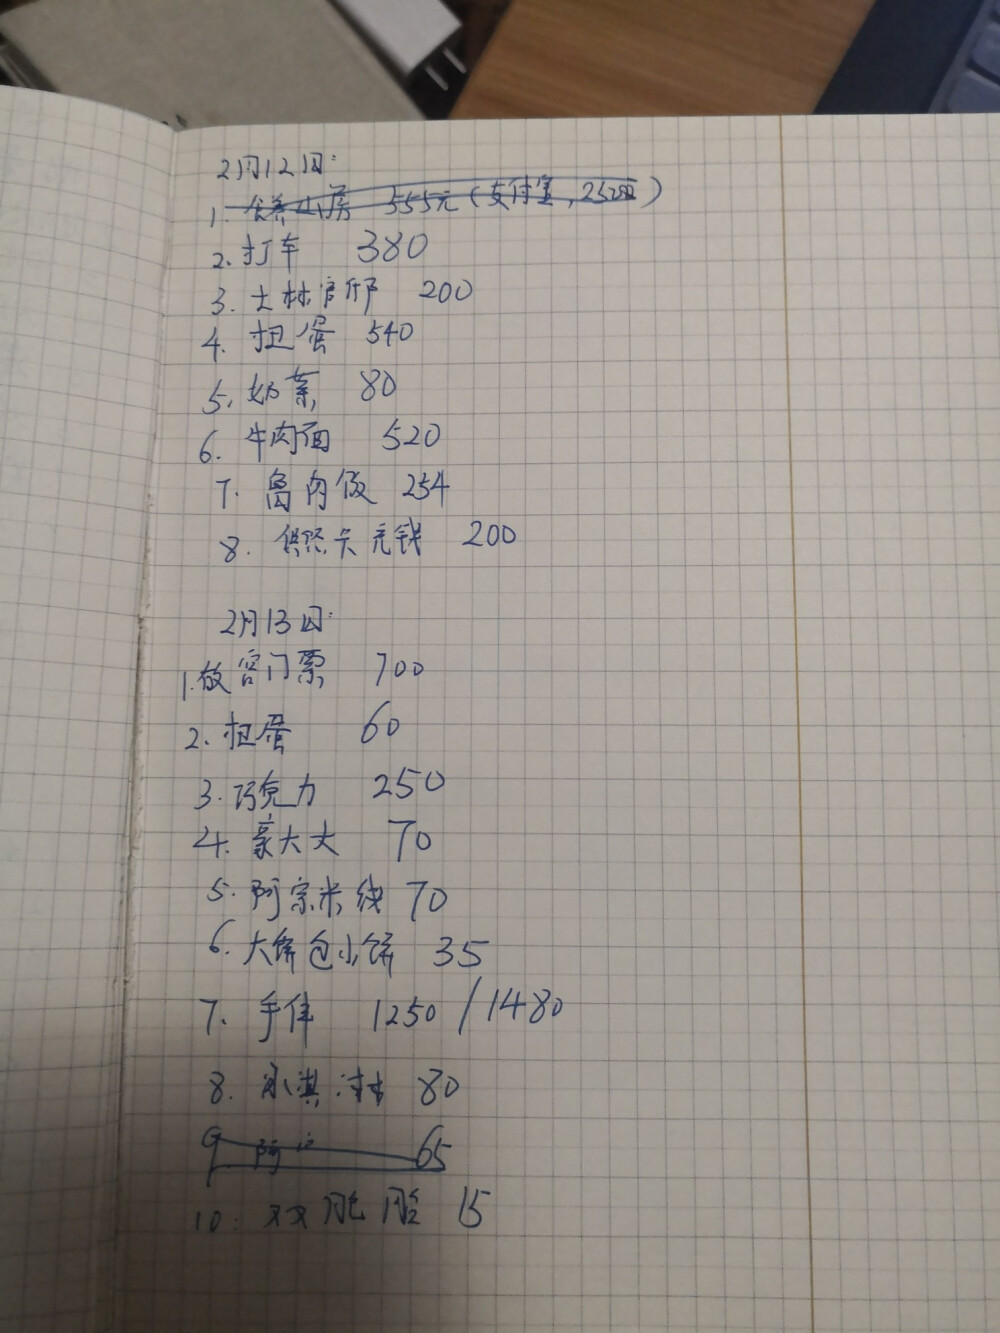 2月12日:
1. 小房 555元(支付宝,252)
2. 打车 380
3. 士林官邸 200
4. 扭蛋 540
5. 奶茶 80
6. 牛肉面 520
7. 卤肉饭 254
8. 悠悠卡充钱 200
2月13日:
1. 故宫门票 700
2. 扭蛋 60
3. 巧克力 250
4. 豪大大 70
5. 阿宗米线 70
6. 大饼包小饼 35
7. 手伴 1250 / 1480
8. 冰淇淋 80
9 阿 65
10. 双胞胎 15